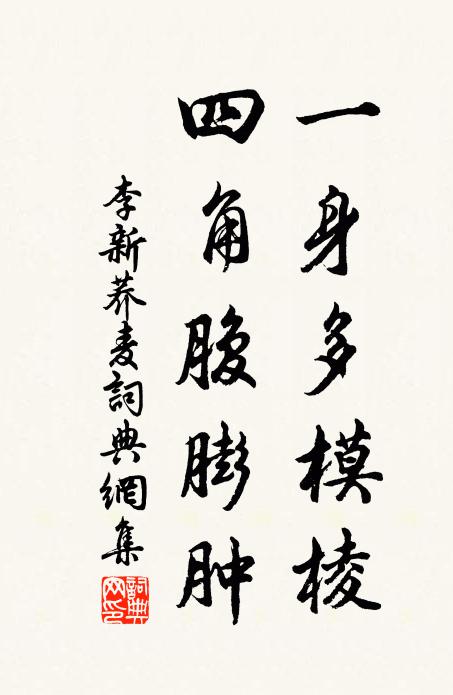 一身多模棱
四角腹膨肿
李新荞麦詞典網集
詞典网印